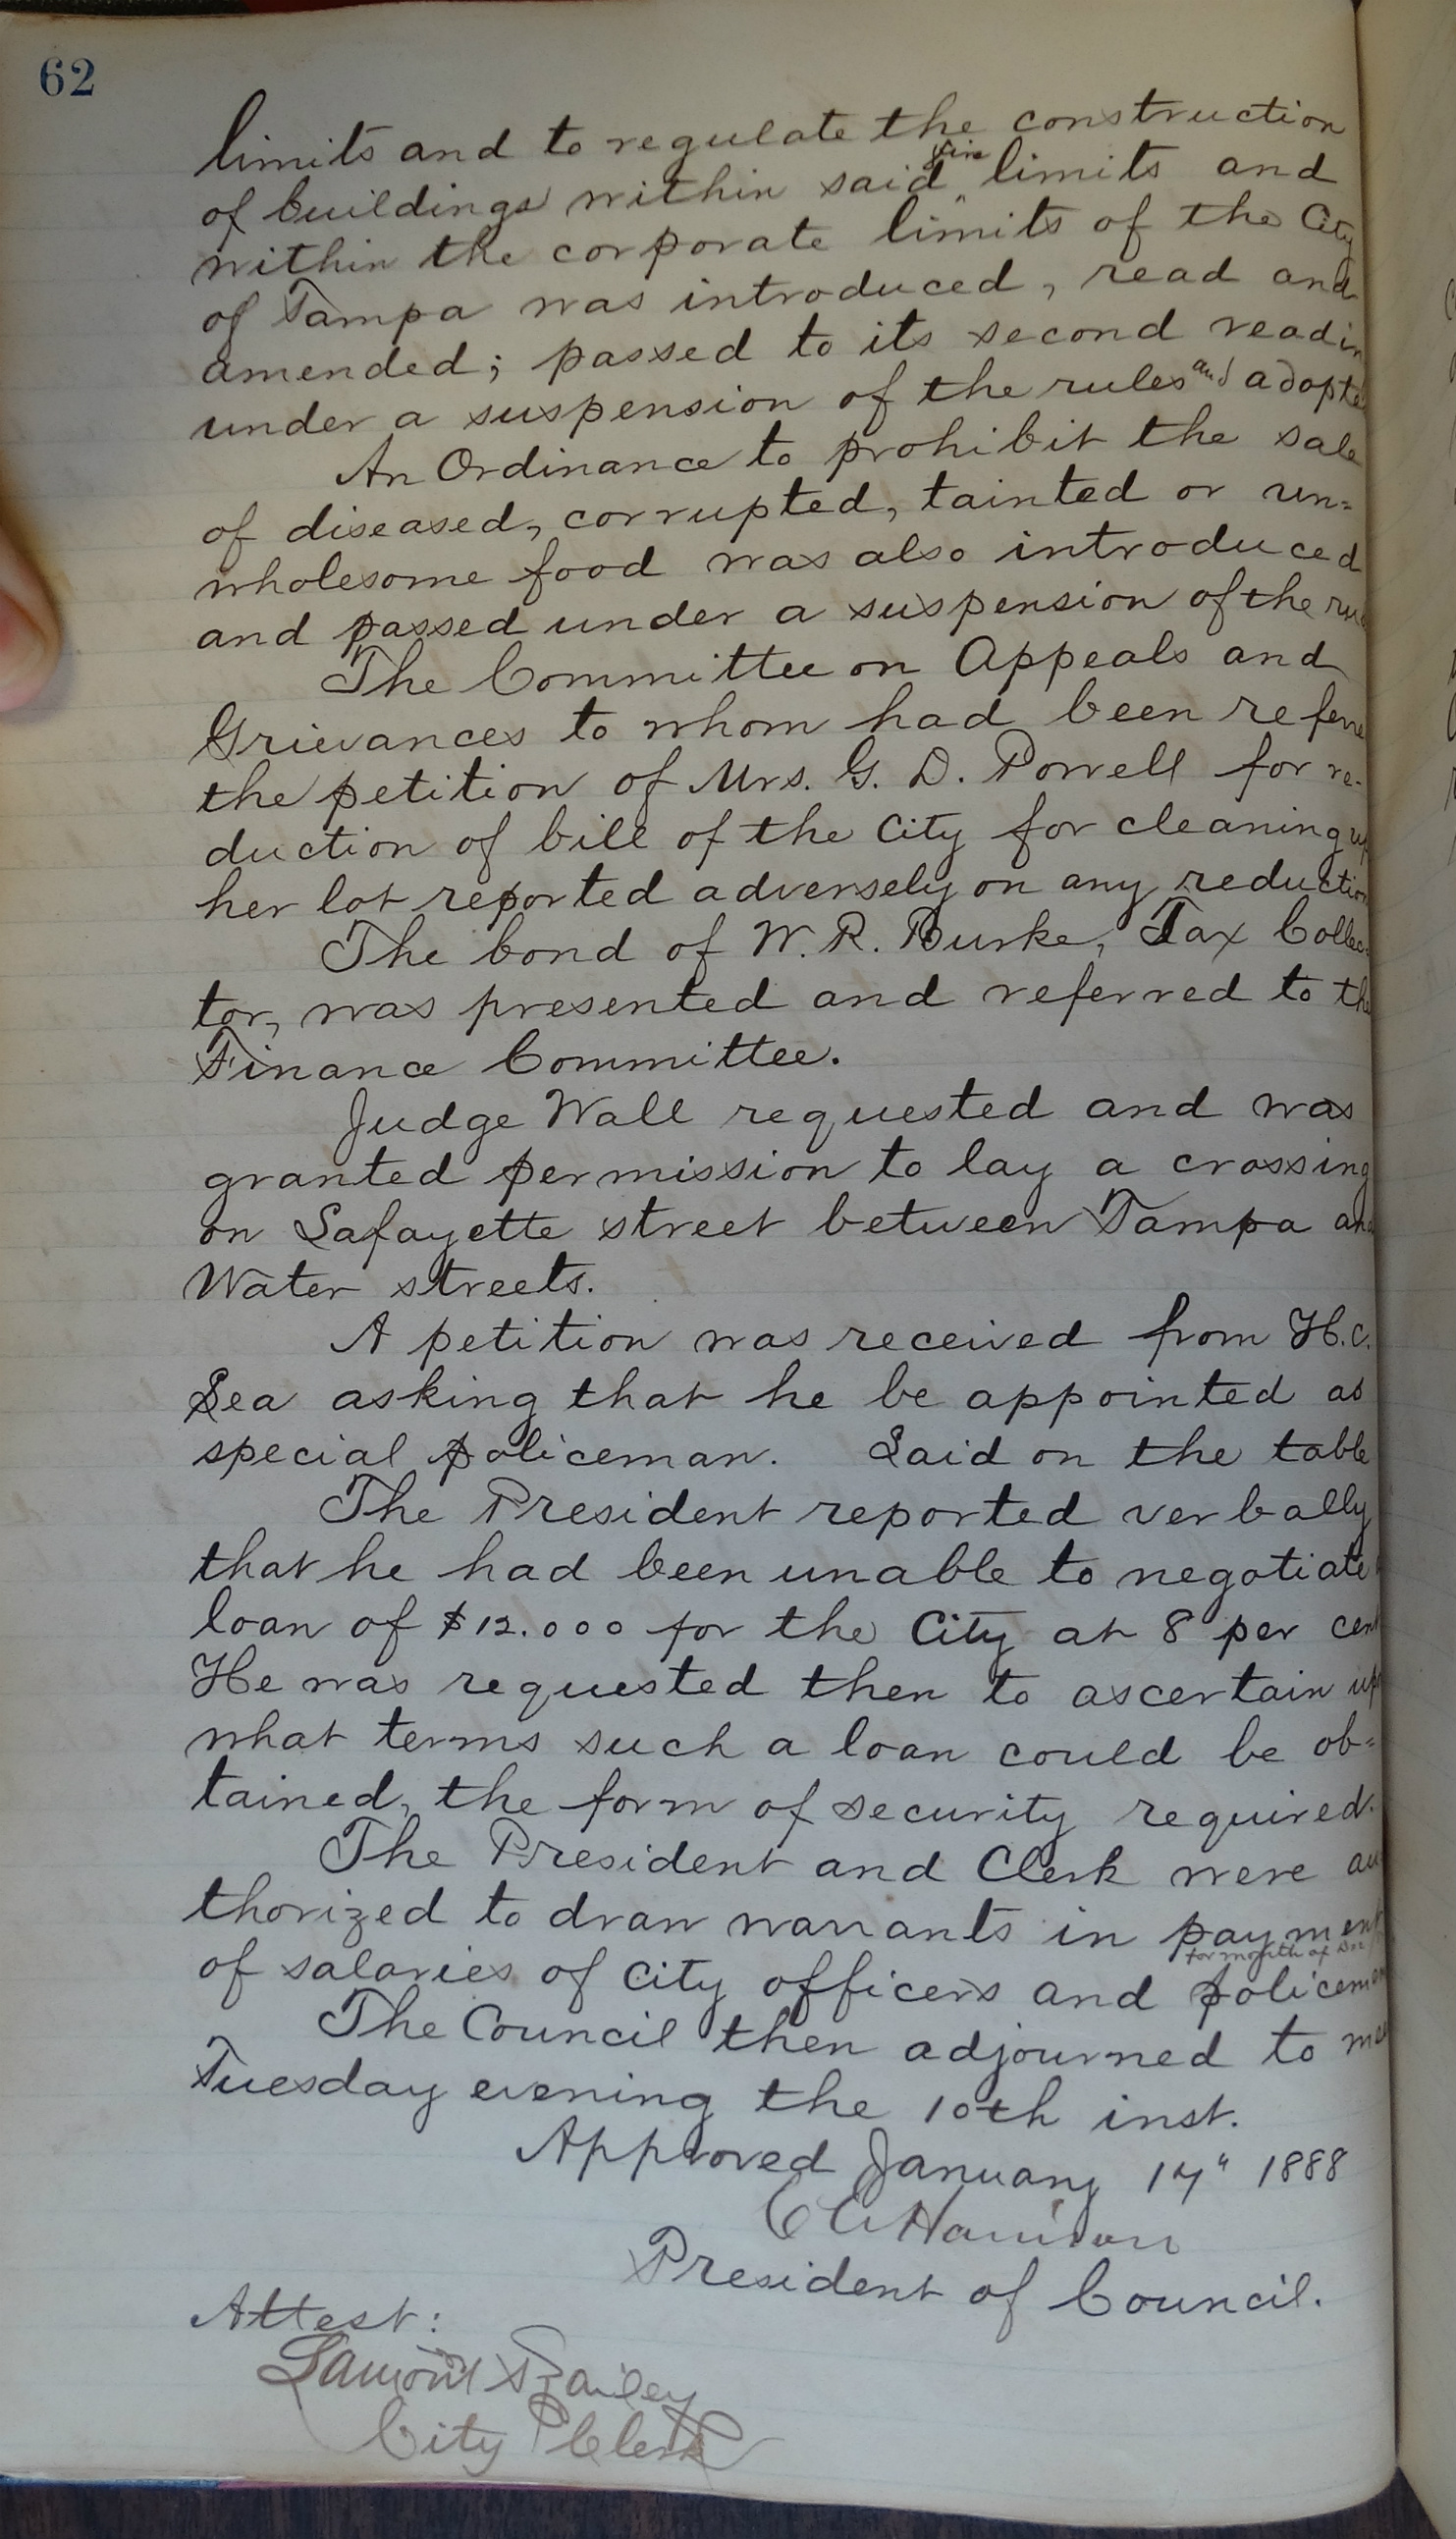 62
limits and to regulate the construction
of buildings within said fire limits and
within the corporate limits of the City
of Tampa was introduced, read and
amended; passed to its second readin
under a suspension of the rules and adopte
An Ordinance to prohibit the sale
of diseased, corrupted, tainted or un=
wholesome food was also introduced
and passed under a suspension of the ru
The Committee on Appeals and
Grievances to whom had been referre
the petition of Mrs. G. D. Powell for re-
duction of bill of the City for cleaning up
her lot reported adversely on any reduction
The bond of W. R. Burke, Tax Collec
tor, was presented and referred to the
Finance Committee.
Judge Wall requested and was
granted permission to lay a crossing
on Lafayette street between Tampa and
Water streets.
A petition was received from H. C.
Lea asking that he be appointed as
special policeman. Laid on the table
The President reported verbally
that he had been unable to negotiate
loan of $12.000 for the City at 8 per cent
He was requested then to ascertain up
what terms such a loan could be ob=
tained, the form of security required.
The President and Clerk were au
thorized to draw warrants in payment
for month of
of salaries of City officers and policemen
The Council then adjourned to mee
Tuesday evening the 10th inst.
Approved January 17" 1888
Harrison
President of Council.
Attest:
Lamont Bailey
City Clerk